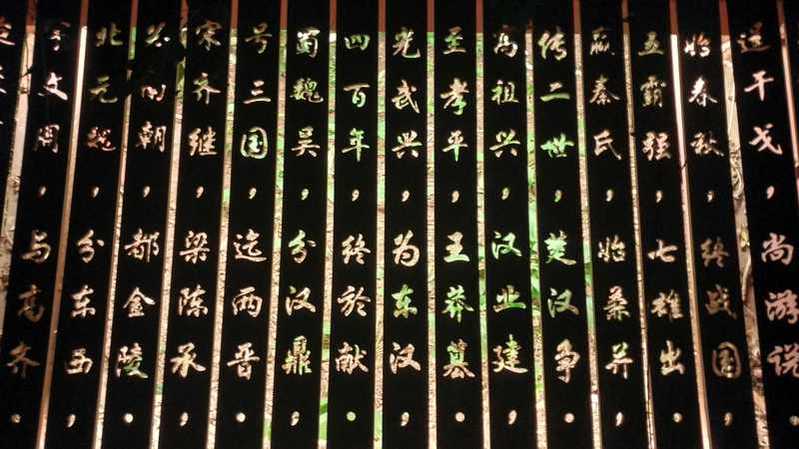 逞干戈，尚游说。
始春秋，终战国，
五霸强，七雄出。
嬴秦氏，始兼并，
传二世，楚汉争。
高祖兴，汉业建，
至孝平，王莽篡。
光武兴，为东汉，
四百年，终於献。
蜀魏吴，分汉鼎，
号三国，迄两晋。
宋齐继，梁陈承，
为南朝，都金陵。
北元魏，分东西，
宇文周，与高齐。